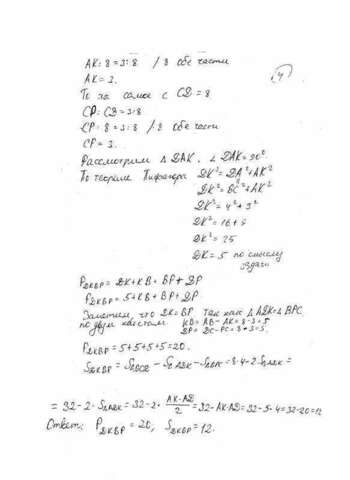 AK:8=3:8 /8 обе части
4
AK=3.
То же самое с CD=8
CP:CD=3:8
CP:8=3:8 /8 обе части
CP=3.
Рассмотрим △DAK, ∠DAK=90°
По теореме Пифагора DK²=DA²+AK²
DK²=BC²+AK²
DK²=4²+3²
DK²=16+9
DK²=25
DK=5 по смыслу
задачи
P_DKBP=DK+KB+BP+DP
P_DKBP=5+KB+BP+DP
Заметим, что DK=BP так как △ADK=△BPC
по двум катетам. KB=AB-AK=8-3=5
DP=DC-PC=8-3=5.
P_DKBP=5+5+5+5=20.
=32-2·S_ADK=32-2·AK·AD/2=32-AK·AD=32-5·4=32-20=12
Ответ: P_DKBP=20, S_DKBP=12.